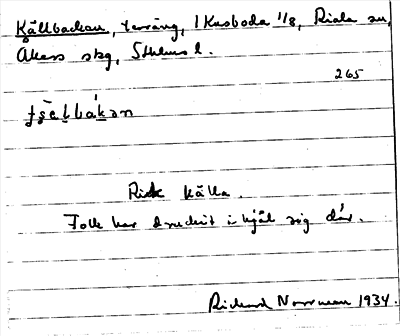 Källbackan, terräng, 1 Kusboda 1/8, Riala sn,
Åkers skg, Sthlms l.
265
Rik källa.
Folk har druckit ihjäl sig där.
Richard Norrman 1934.